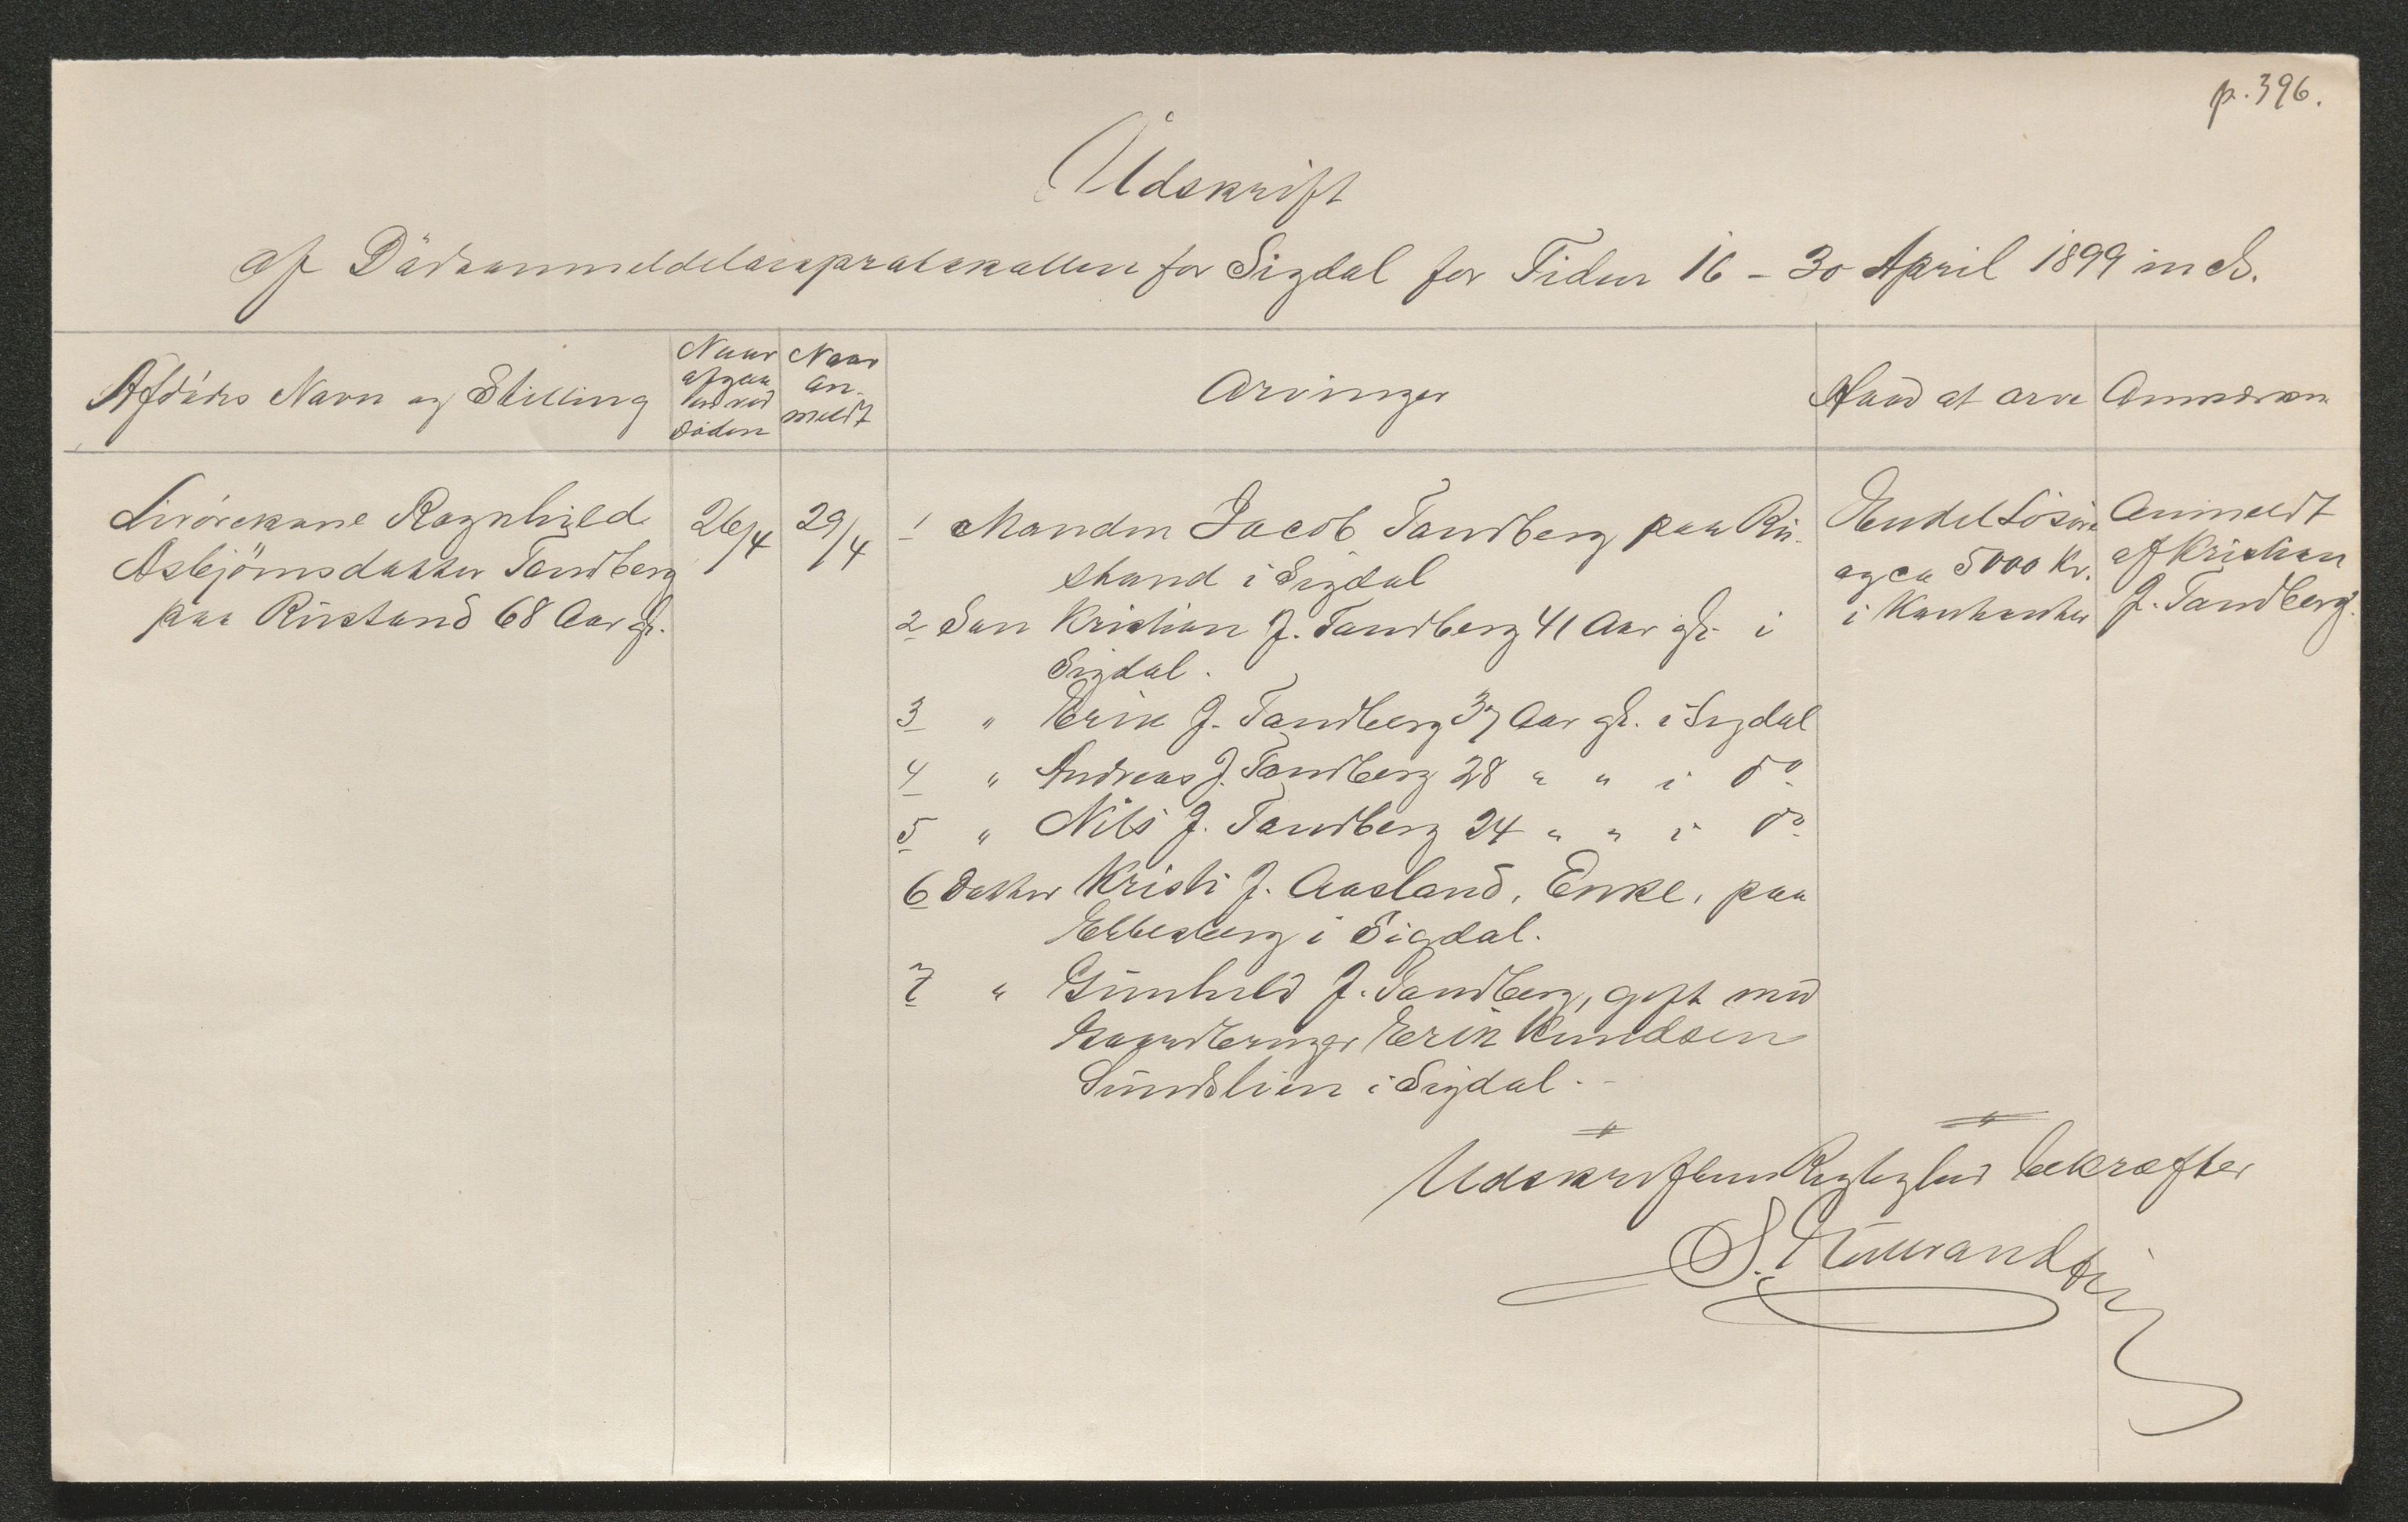 p. 396.
Udskrift
af Dödsanmeldelsesprotokollen for Sigdal for Tiden 16 - 30 April 1899 incl.
Afdödes Navn og Stilling
Naar
afgaa
ved
Döden
Naar
an-
meldt
Arvinger
Hvad at arve
Anmærkn
Livörekone Ragnhild
Asbjörnsdatter Tandberg
paa Rustand 68 Aar gl.
26/4
29/4
1 Manden Jacob Tandberg paa Ru-
stand i Sigdal
2 Søn Kristian J. Tandberg 41 Aar gl. i
Sigdal.
3 " Erik J. Tandberg 37 Aar gl. i Sigdal
4 " Andreas J. Tandberg 28 " " i do
5 " Nils J. Tandberg 24 " " i do
6 Datter Kristi J. Aasland, Enke, paa
i Sigdal.
7 " Gunhild J. Tandberg, gift med
Gaardbruger Erik Knudsen
Sundslien i Sigdal. -
Endel Lösöre
og ca 5000 Kr.
i Kontanter
Anmeldt
af Kristian
J. Tandberg.
Udskriftens Rigtighed bekræfter
S.